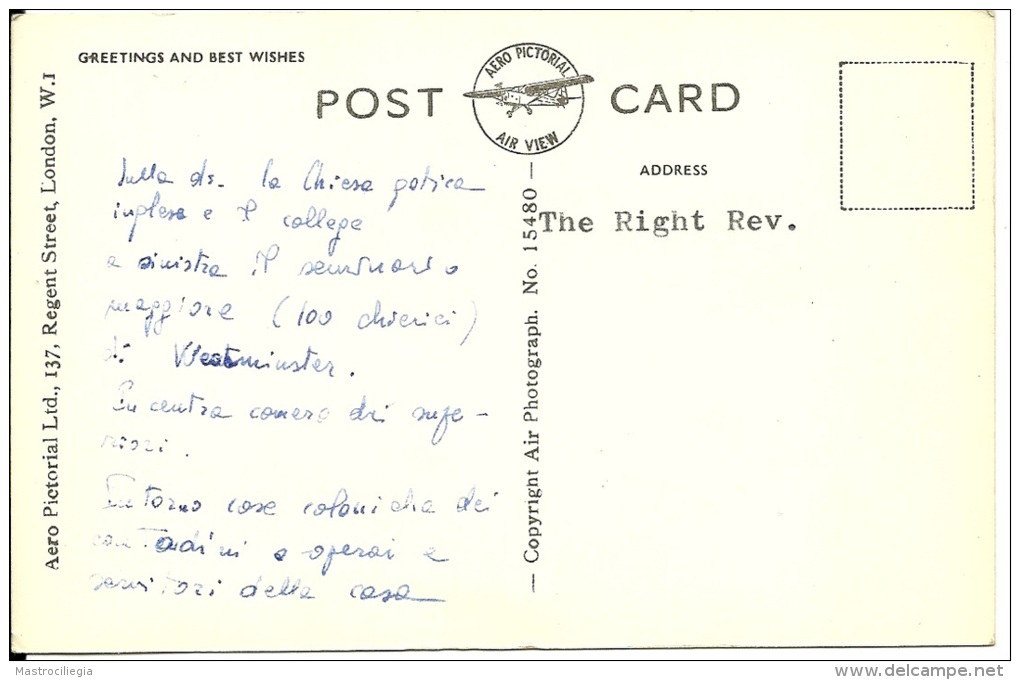 GREETINGS AND BEST WISHES
POST CARD
AERO PICTORIAL
AIR VIEW
Aero Pictorial Ltd., 137, Regent Street, London, W.1
— Copyright Air Photograph. No. 15480 —
ADDRESS
The Right Rev.
Sulla ds. la Chiesa gotica
inglese e il college
a sinistra il seminario
maggiore (100 chierici)
di Westminster.
In centro camera dei supe-
riori.
Intorno case coloniche dei
contadini e operai e
servitori della casa
Mastrociliegia
www.delcampe.net